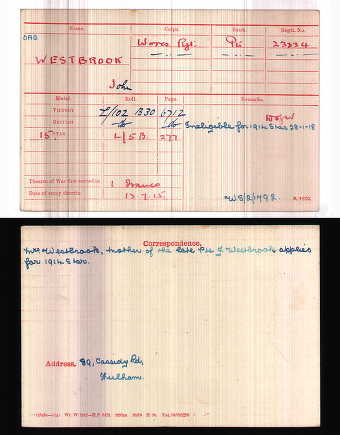 Corps. Rank. Regtl. No.
WESTBROOK Worcs Rgt. Pte 23234
John
Medal. Roll. Page. Remarks.
Victory L/102 B30 6712
British do do Ineligible for 1914 Star 28-1-18
15 Star L/5B. 277
Theatre of War first served in 1 France
Date of entry therein 13.7.15.
K 1380
Correspondence.
Mrs Westbrook, mother of the late Pte J Westbrook applies
for 1914 Star.
Address. 89, Cassidy Rd,
Fulham.